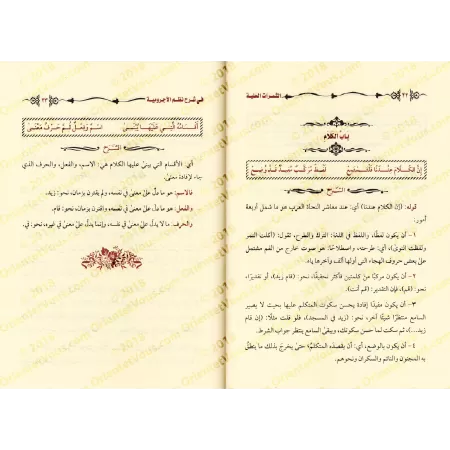 الثمرات الحلية
٢٢
باب الكلام
إن الكلام عندنا فلتستمع لفظ مركب مفيد قد وضع
الشرح
قوله: (إن الكلام عندنا) أي: عند معاشر النحاة العرب هو ما شمل أربعة
أمور:
١ - أن يكون لفظًا، واللفظ في اللغة: الترك والطرح، تقول: (أكلت التمر
ولفظت النوى)، أي: طرحته، واصطلاحًا: هو صوت خارج من الفم مشتمل
على بعض حروف الهجاء التي أولها ألف وآخرها ياء.
٢ - أن يكون مركبًا من كلمتين فأكثر تحقيقًا، نحو: (قام زيد)، أو تقديرًا،
نحو: (قم)، فإن التقدير: (قم أنت).
٣ - أن يكون مفيدًا إفادة يحسن سكوت المتكلم عليها بحيث لا يصير
السامع منتظرًا شيئًا آخر، نحو: (زيد في المسجد)، فلو قلت مثلًا: (إن قام
زيد...)، ثم سكت لما حسن سكوتك، ويبقى السامع ينتظر جواب الشرط.
٤ - أن يكون بالوضع، أي: بقصده المتكلم؛ حتى يخرج بذلك ما ينطق
به المجنون والنائم والسكران ونحوهم.
في شرح نظم الآجرومية
٢٣
أقسامه التي عليها يبنى اسم وفعل ثم حرف معنى
الشرح
أي: الأقسام التي يبنى عليها الكلام هي: الاسم، والفعل، والحرف الذي
جاء لإفادة معنى.
فالاسم: هو ما دل على معنى في نفسه، ولم يقترن بزمان، نحو: زيد.
والفعل: هو ما دل على معنى في نفسه، واقترن بزمان، نحو: قام.
والحرف: ما لا يدل على معنى في نفسه، وإنما يدل على معنى في غيره، نحو: في.